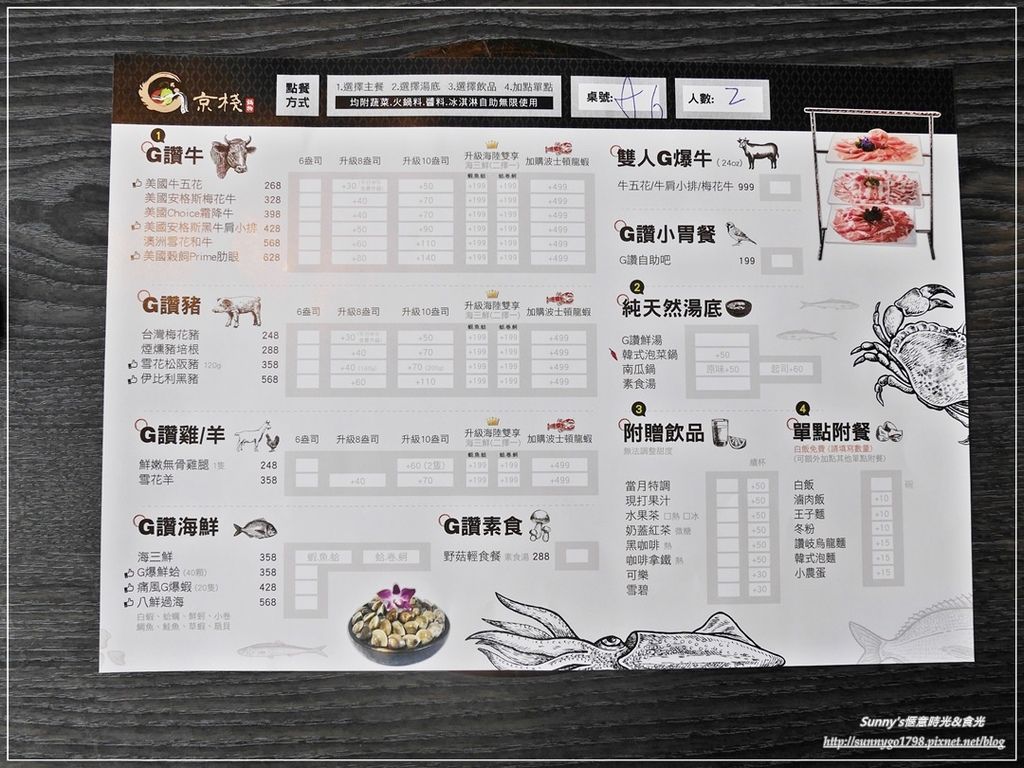 京棧 鍋物
點餐方式
1.選擇主餐 2.選擇湯底 3.選擇飲品 4.加點單點
均附蔬菜.火鍋料.醬料.冰淇淋自助無限使用
桌號: A6
人數: 2
1
G讚牛
6盎司 升級8盎司 升級10盎司 升級海陸雙享 海三鮮(二擇一) 加購波士頓龍蝦
蝦魚蛤 蛤卷蚵
美國牛五花 268 +30 +50 +199 +199 +499
美國安格斯梅花牛 328 +40 +70 +199 +199 +499
美國Choice霜降牛 398 +40 +70 +199 +199 +499
美國安格斯黑牛肩小排 428 +50 +90 +199 +199 +499
澳洲雪花和牛 568 +60 +110 +199 +199 +499
美國穀飼Prime肋眼 628 +80 +140 +199 +199 +499
G讚豬
6盎司 升級8盎司 升級10盎司 升級海陸雙享 海三鮮(二擇一) 加購波士頓龍蝦
蝦魚蛤 蛤卷蚵
台灣梅花豬 248 +30 +50 +199 +199 +499
煙燻豬培根 288 +40 +70 +199 +199 +499
雪花松阪豬 120g 358 +40 (160g) +70 (200g) +199 +199 +499
伊比利黑豬 568 +60 +110 +199 +199 +499
G讚雞/羊
6盎司 升級8盎司 升級10盎司 升級海陸雙享 海三鮮(二擇一) 加購波士頓龍蝦
蝦魚蛤 蛤卷蚵
鮮嫩無骨雞腿 1隻 248 +60 (2隻) +199 +199 +499
雪花羊 358 +40 +70 +199 +199 +499
G讚海鮮
蝦魚蛤 蛤卷蚵
海三鮮 358
G爆鮮蛤 (40顆) 358
痛風G爆蝦 (20隻) 428
八鮮過海 568
白蝦、蛤蠣、鮮蚵、小卷
鯛魚、鮭魚、草蝦、扇貝
G讚素食
野菇輕食餐 素食湯 288
雙人G爆牛 (24oz)
牛五花/牛肩小排/梅花牛 999
G讚小胃餐
G讚自助吧 199
2
純天然湯底
G讚鮮湯
韓式泡菜鍋 +50
南瓜鍋 原味+50 起司+60
素食湯
3
附贈飲品
無法調整甜度
續杯
當月特調 +50
現打果汁 +50
水果茶 □熱 □冰 +50
奶蓋紅茶 微糖 +50
黑咖啡 熱 +50
咖啡拿鐵 熱 +50
可樂 +30
雪碧 +30
4
單點附餐
白飯免費 (請填寫數量)
(可額外加點其他單點附餐)
白飯 碗
滷肉飯 +10
王子麵 +10
冬粉 +10
讚岐烏龍麵 +15
韓式泡麵 +15
小農蛋 +15
Sunny's愜意時光&食光
http://sunnygo1798.pixnet.net/blog